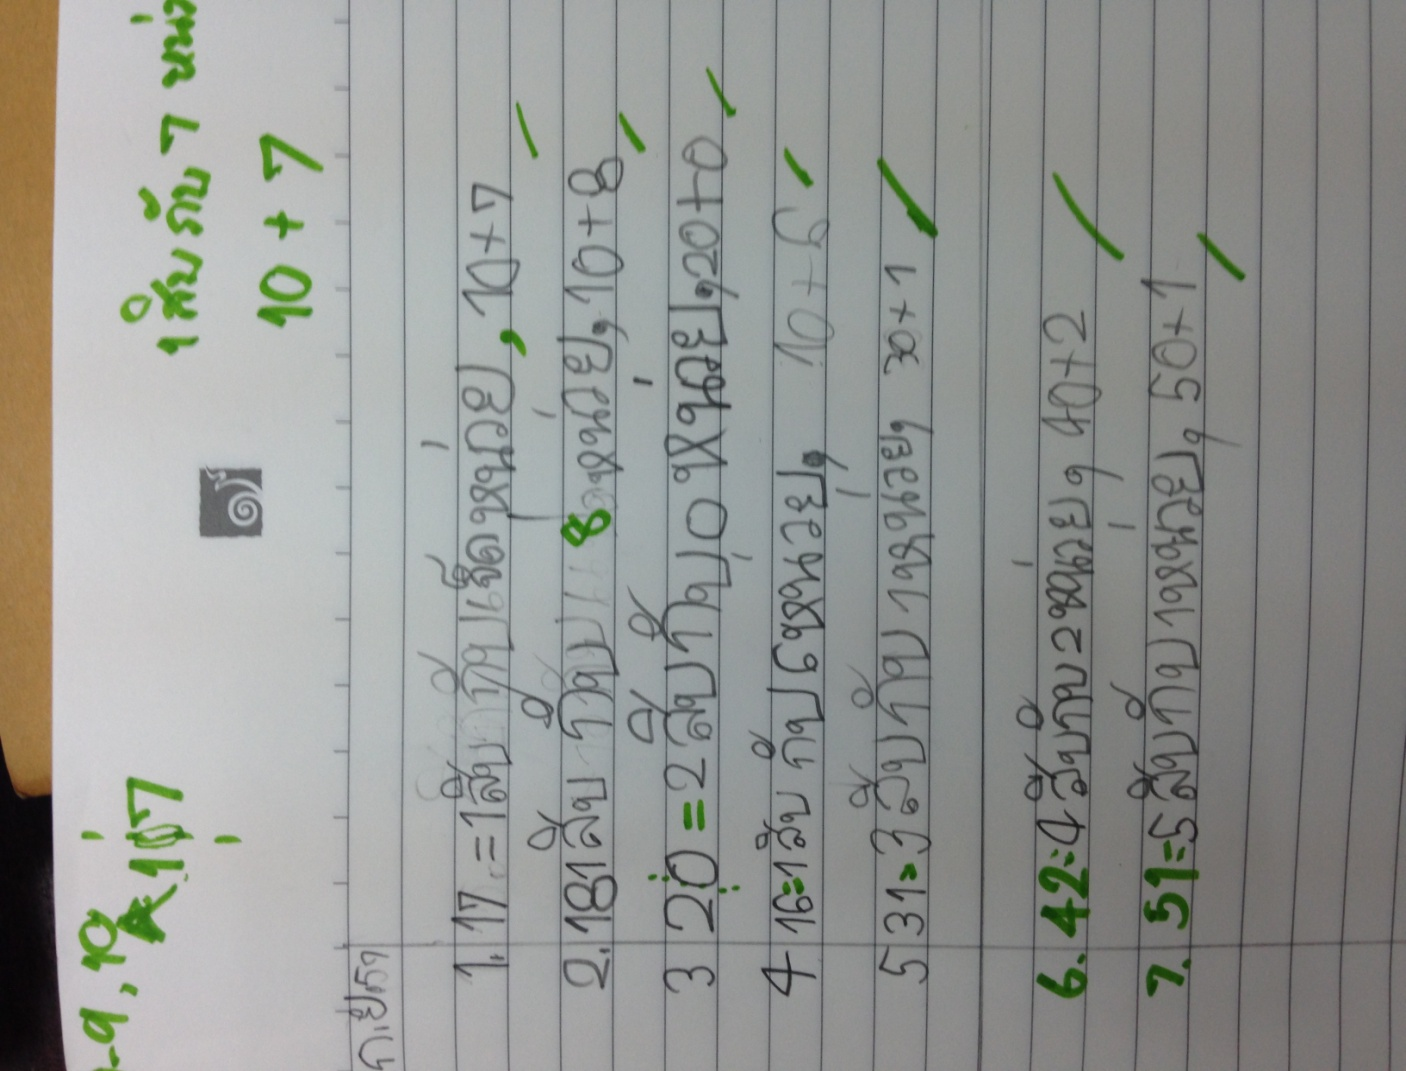 -9, 10, 107
1 สิบ กับ 7 หน่ว
10 + 7
1. 17 = 1 สิบกับ 7 หน่วย, 10+7
2. 18 1 สิบ กับ 8 หน่วย, 10+8
3 20 = 2 สิบกับ 0 หน่วย, 20+0
4 16 = 1 สิบ กับ 6 หน่วย, 10+6
5 31 = 3 สิบกับ 1 หน่วย, 30+1
6. 42 = 4 สิบกับ 2 หน่วย, 40+2
7. 51 = 5 สิบกับ 1 หน่วย, 50+1